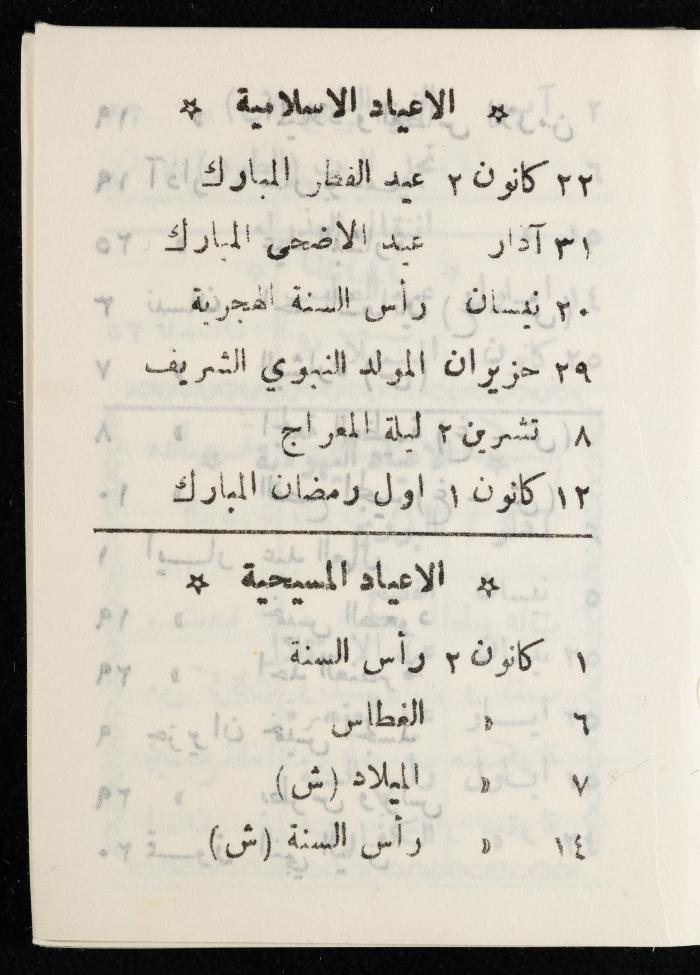 ☆ الاعياد الاسلامية ☆
٢٢ كانون ٢ عيد الفطر المبارك
٣١ آذار عيد الاضحى المبارك
٢٠ نيسان رأس السنة الهجرية
٢٩ حزيران المولد النبوي الشريف
٨ تشرين ٢ ليلة المعراج
١٢ كانون ١ اول رمضان المبارك
☆ الاعياد المسيحية ☆
١ كانون ٢ رأس السنة
٦ » الغطاس
٧ » الميلاد (ش)
١٤ » رأس السنة (ش)